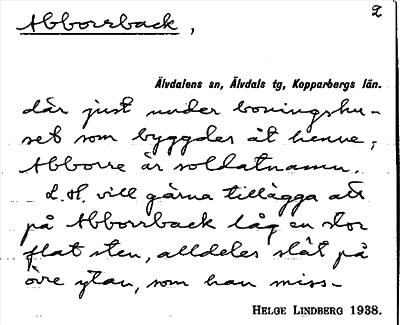 Abborrback,
2
Älvdalens sn, Älvdals tg, Kopparbergs län.
där just under boningshu-
set som byggdes åt henne,
Abborre är soldatnamn.
L. H. vill gärna tillägga att
på Abborrback låg en stor
flat sten, alldeles slät på
övre ytan, som han miss-
HELGE LINDBERG 1938.